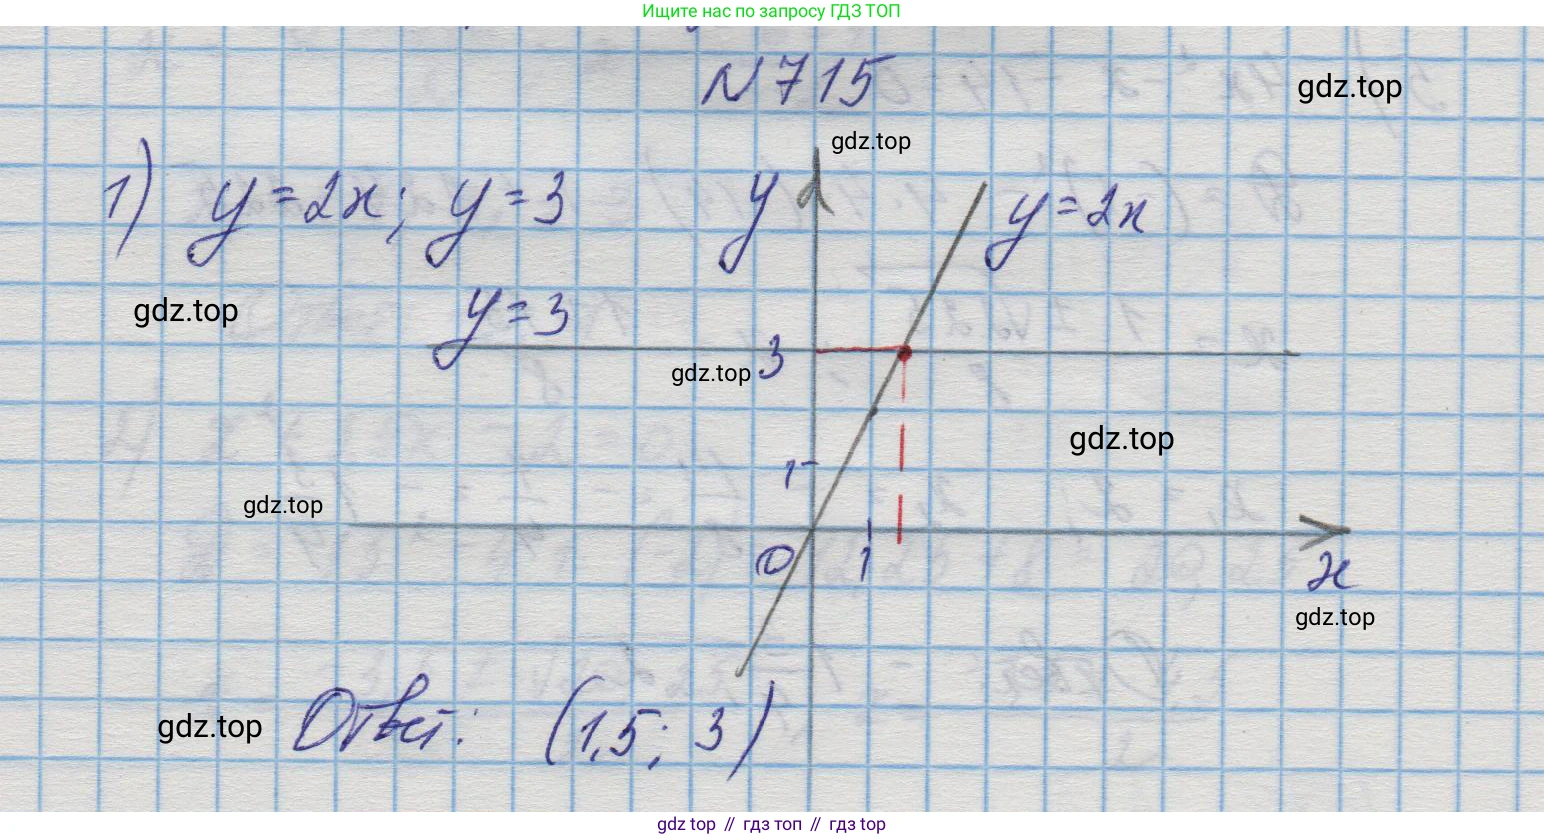 Ищите нас по запросу ГДЗ ТОП
N 715
gdz.top
gdz.top
1) y = 2x; y = 3
y
y = 2x
gdz.top
y = 3
3
gdz.top
gdz.top
1
gdz.top
0
1
x
gdz.top
gdz.top
Ответ: (1,5; 3)
gdz top // гдз топ // гдз top